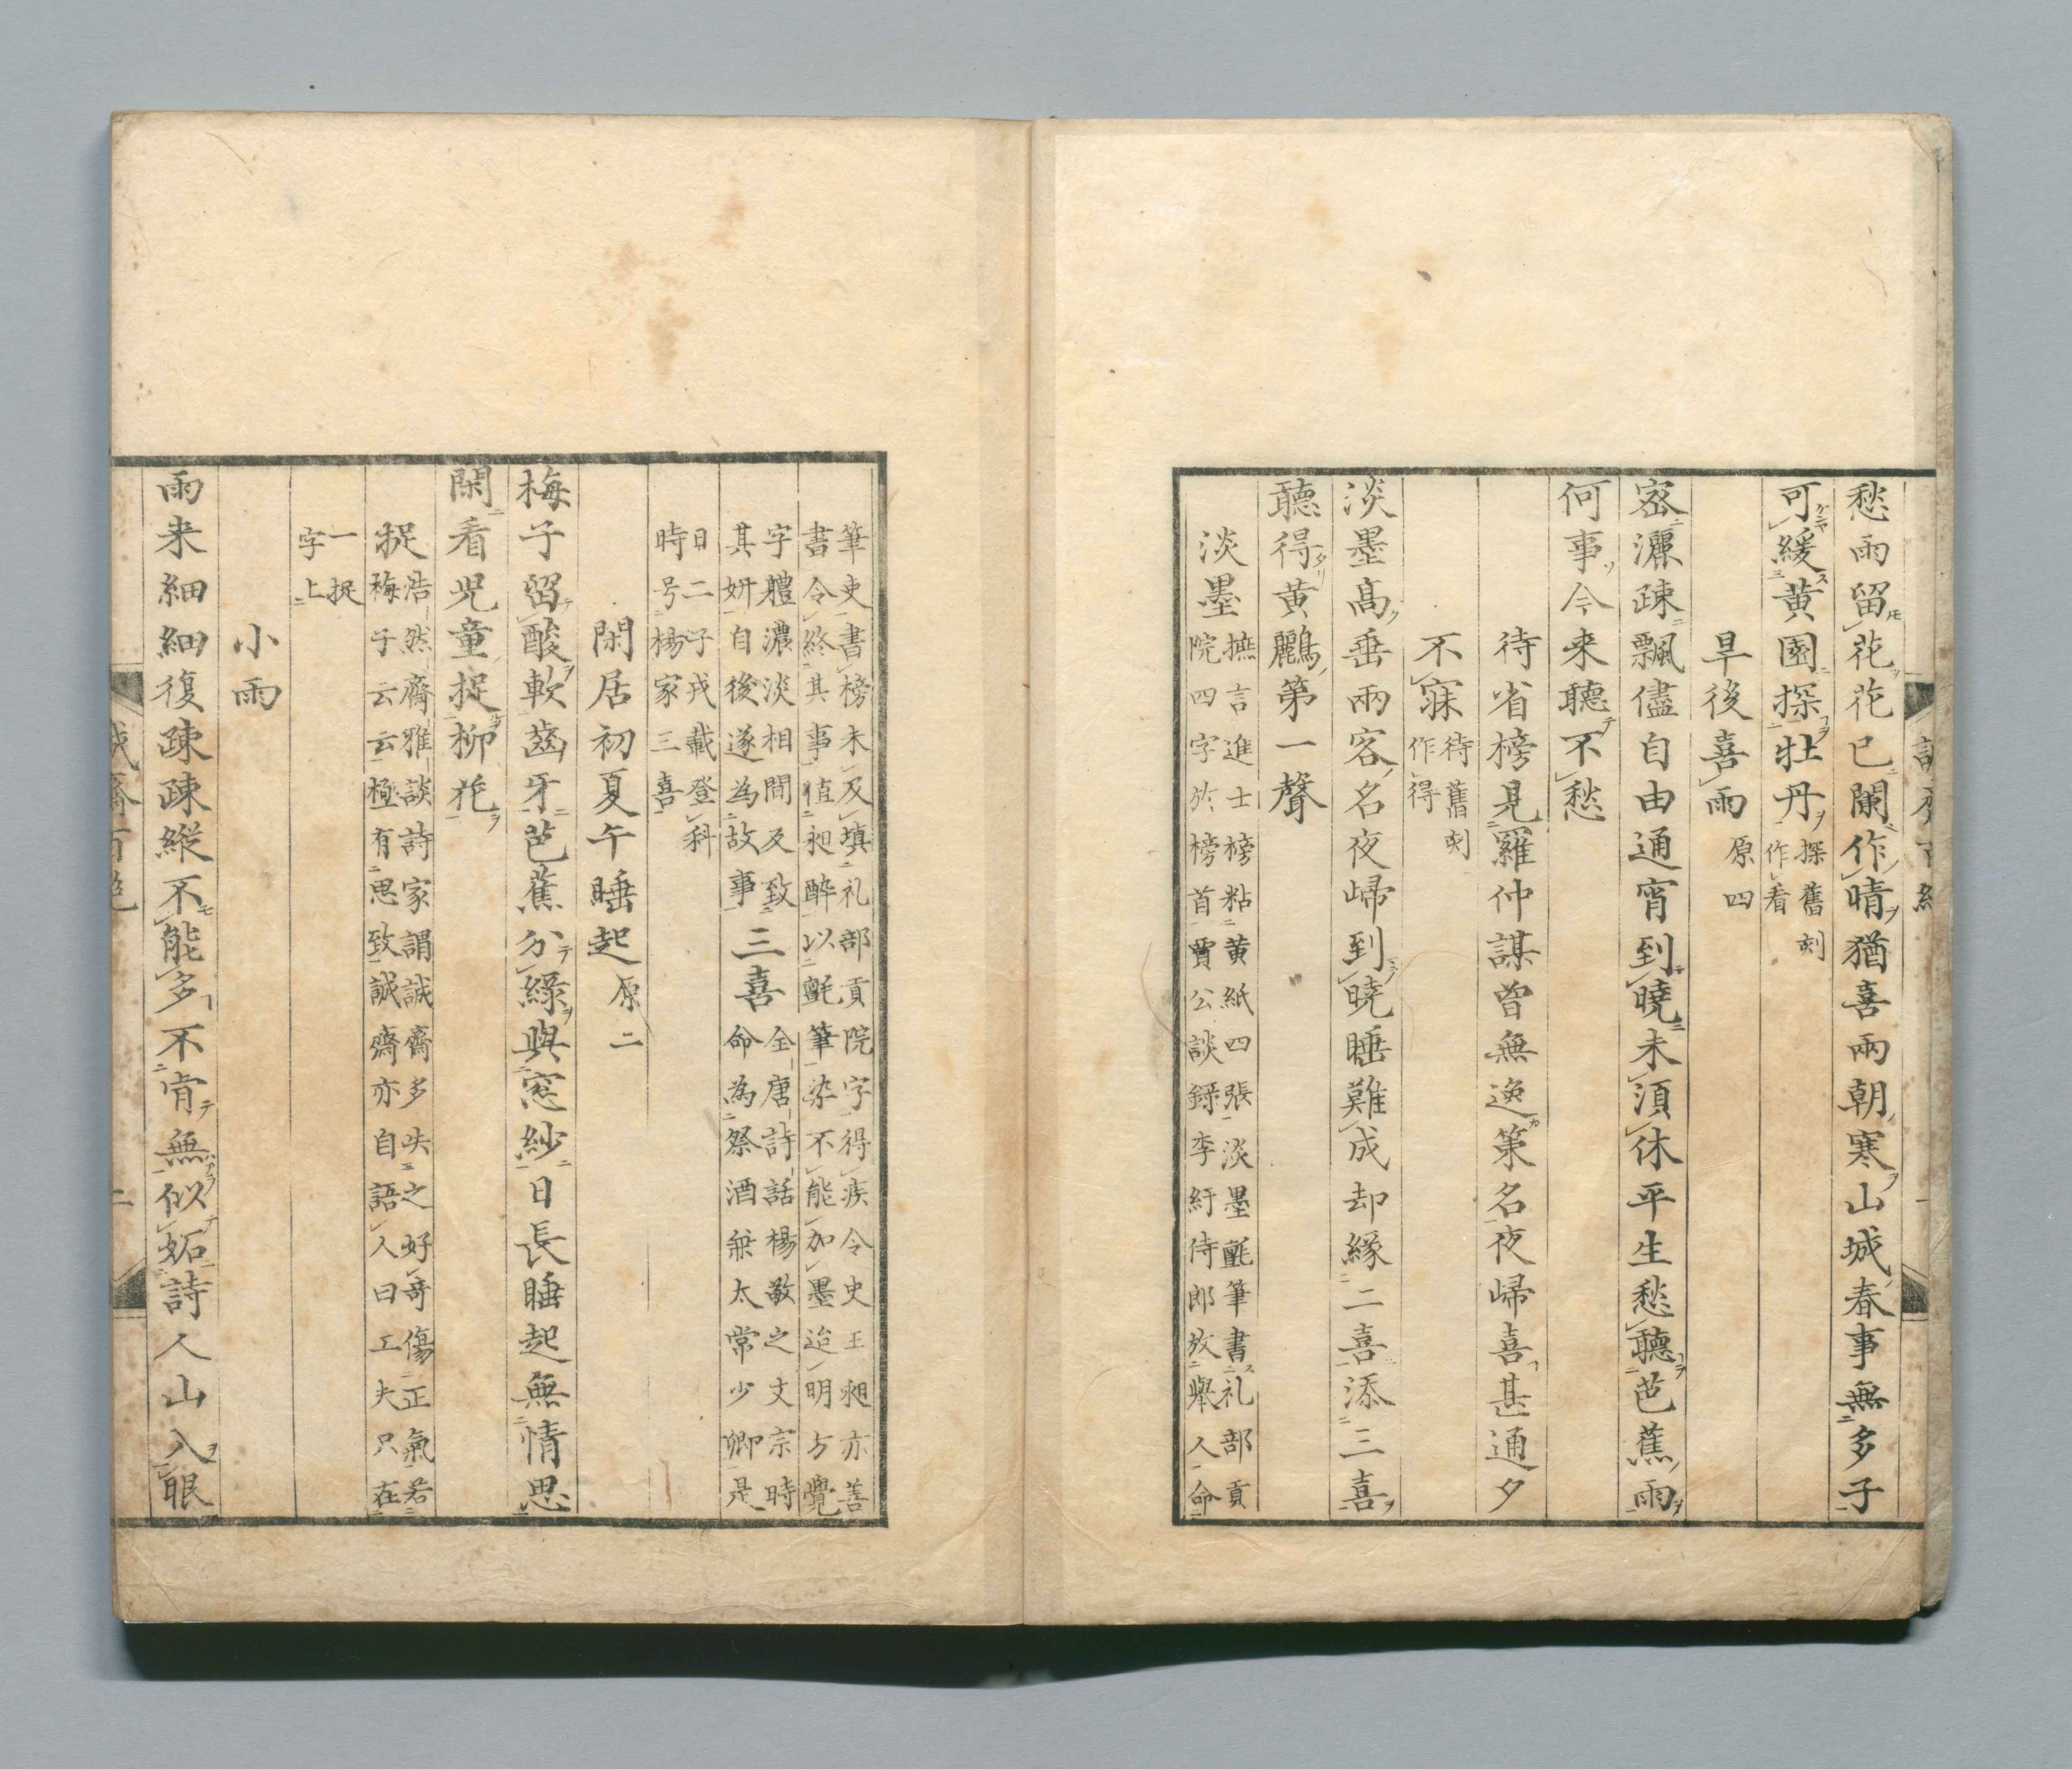 愁雨留花花已闌作晴猶喜兩朝寒山城春事無多子
可緩黄園探牡丹探舊刻作看
早後喜雨原四
密灑疎飄儘自由通宵到曉未須休平生愁聽芭蕉雨
何事今来聽不愁
待省榜見羅仲謀曾無逸策名夜歸喜甚通夕
不寐待舊刻作得
淡墨高垂兩客名夜歸到曉睡難成却緣二喜添三喜
聽得黄鸝第一聲
淡墨摭言進士榜粘黄紙四張淡墨氈筆書礼部貢
院四字於榜首賈公談録李紆侍郎放舉人命
筆吏書榜未及填礼部貢院字得疾令史王昶亦善
書令終其事值昶醉以氈筆染不能加墨迨明方覺
字軆濃淡相間及致
其妍自後遂為故事三喜全唐詩話楊敬之文宗時
命為祭酒兼太常少卿是
日二子戎載登科
時号楊家三喜
閑居初夏午睡起原二
梅子留酸軟齒牙芭蕉分綠與窓紗日長睡起無情思
閑看児童捉柳花
捉浩然齋雅談詩家謂誠齋多失之好奇傷正氣若
梅子云云極有思致誠齋亦自語人曰工夫只在
一捉
字上
小雨
雨来細細復疎疎縱不能多不肯無似妬詩人山入眼
誠齋百絶
二